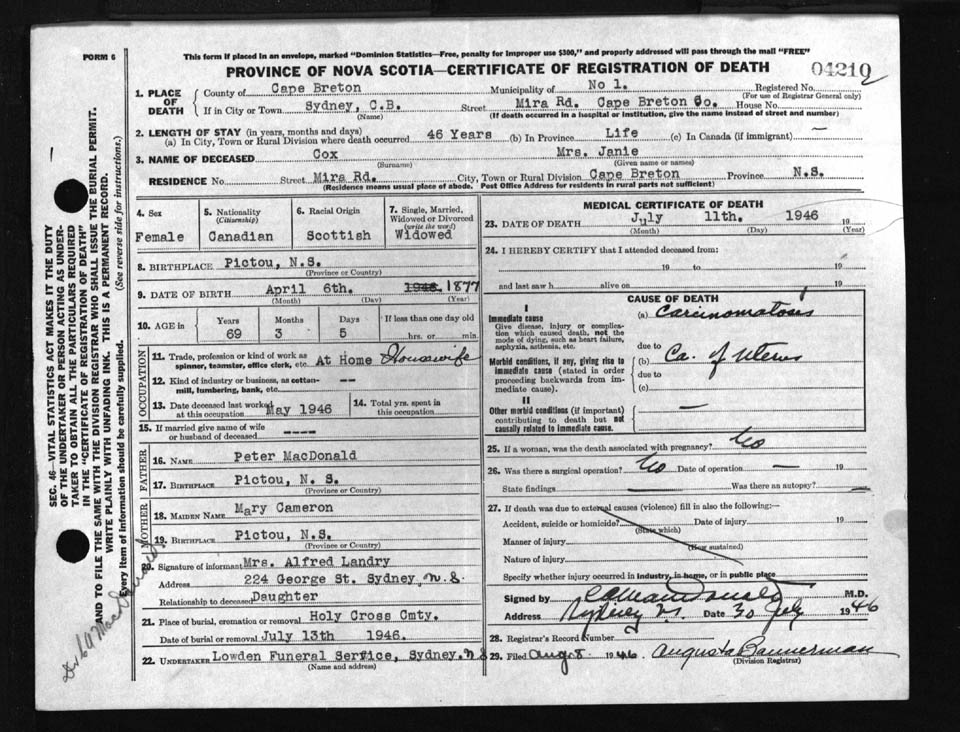 FORM 6
This form if placed in an envelope, marked "Dominion Statistics—Free, penalty for improper use $300," and properly addressed will pass through the mail "FREE"
PROVINCE OF NOVA SCOTIA—CERTIFICATE OF REGISTRATION OF DEATH
04210
1. PLACE OF DEATH
County of Cape Breton Municipality of No 1. Registered No.
(For use of Registrar General only)
If in City or Town Sydney, C.B. Street Mira Rd. Cape Breton Co. House No.
(Name) (If death occurred in a hospital or institution, give the name instead of street and number)
2. LENGTH OF STAY (in years, months and days)
(a) In City, Town or Rural Division where death occurred 46 Years (b) In Province Life (c) In Canada (if immigrant) —
3. NAME OF DECEASED Cox Mrs. Janie
(Surname) (Given name or names)
RESIDENCE No. Street Mira Rd. City, Town or Rural Division Cape Breton Province N.S.
(Residence means usual place of abode. Post Office Address for residents in rural parts not sufficient)
4. Sex Female
5. Nationality (Citizenship) Canadian
6. Racial Origin Scottish
7. Single, Married, Widowed or Divorced (write the word) Widowed
8. BIRTHPLACE Pictou, N.S.
(Province or Country)
9. DATE OF BIRTH April 6th. 1946. 1877
(Month) (Day) (Year)
10. AGE in Years 69 Months 3 Days 5 If less than one day old
hrs. or min.
OCCUPATION
11. Trade, profession or kind of work as spinner, teamster, office clerk, etc. At Home Housewife
12. Kind of industry or business, as cotton-mill, lumbering, bank, etc. --
13. Date deceased last worked at this occupation May 1946
14. Total yrs. spent in this occupation
15. If married give name of wife or husband of deceased ----
FATHER
16. NAME Peter MacDonald
17. BIRTHPLACE Pictou, N. S.
(Province or Country)
MOTHER
18. MAIDEN NAME Mary Cameron
19. BIRTHPLACE Pictou, N.S.
(Province or Country)
20. Signature of informant Mrs. Alfred Landry
Address 224 George St. Sydney N.S.
Relationship to deceased Daughter
21. Place of burial, cremation or removal Holy Cross Cmty.
Date of burial or removal July 13th 1946.
22. UNDERTAKER Lowden Funeral Service, Sydney. N S
(Name and address)
MEDICAL CERTIFICATE OF DEATH
23. DATE OF DEATH July 11th. 1946 19
(Month) (Day) (Year)
24. I HEREBY CERTIFY that I attended deceased from:
19 to 19
and last saw h alive on 19
CAUSE OF DEATH
I
Immediate cause
Give disease, injury or complication which caused death, not the mode of dying, such as heart failure, asphyxia, asthenia, etc.
(a) Carcinomatosis
due to
Morbid conditions, if any, giving rise to immediate cause (stated in order proceeding backwards from immediate cause).
(b) Ca. of Uterus
due to
(c)
II
Other morbid conditions (if important) contributing to death but not causally related to immediate cause.
—
25. If a woman, was the death associated with pregnancy? No
26. Was there a surgical operation? No Date of operation — 19
State findings — Was there an autopsy? —
27. If death was due to external causes (violence) fill in also the following:—
Accident, suicide or homicide? Date of injury 19
(State which)
Manner of injury
(How sustained)
Nature of injury
Specify whether injury occurred in industry, in home, or in public place
Signed by M.D.
Address Sydney N.S. Date 30 July 1946
28. Registrar's Record Number
29. Filed Aug. 8 1946. Augusta Bannerman
(Division Registrar)
SEC. 46—VITAL STATISTICS ACT MAKES IT THE DUTY OF THE UNDERTAKER OR PERSON ACTING AS UNDERTAKER TO OBTAIN ALL THE PARTICULARS REQUIRED IN THE "CERTIFICATE OF REGISTRATION OF DEATH" AND TO FILE THE SAME WITH THE DIVISION REGISTRAR WHO SHALL ISSUE THE BURIAL PERMIT.
WRITE PLAINLY WITH UNFADING INK. THIS IS A PERMANENT RECORD.
Every item of information should be carefully supplied. (See reverse side for instructions.)